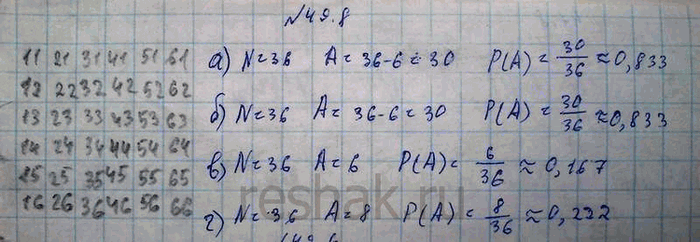 №49.8
11 21 31 41 51 61
12 22 32 42 52 62
13 23 33 43 53 63
14 24 34 44 54 64
15 25 35 45 55 65
16 26 36 46 56 66
а) N=36 A=36-6=30 P(A)=30/36≈0,833
б) N=36 A=36-6=30 P(A)=30/36≈0,833
в) N=36 A=6 P(A)=6/36≈0,167
г) N=36 A=8 P(A)=8/36≈0,222
reshak.ru